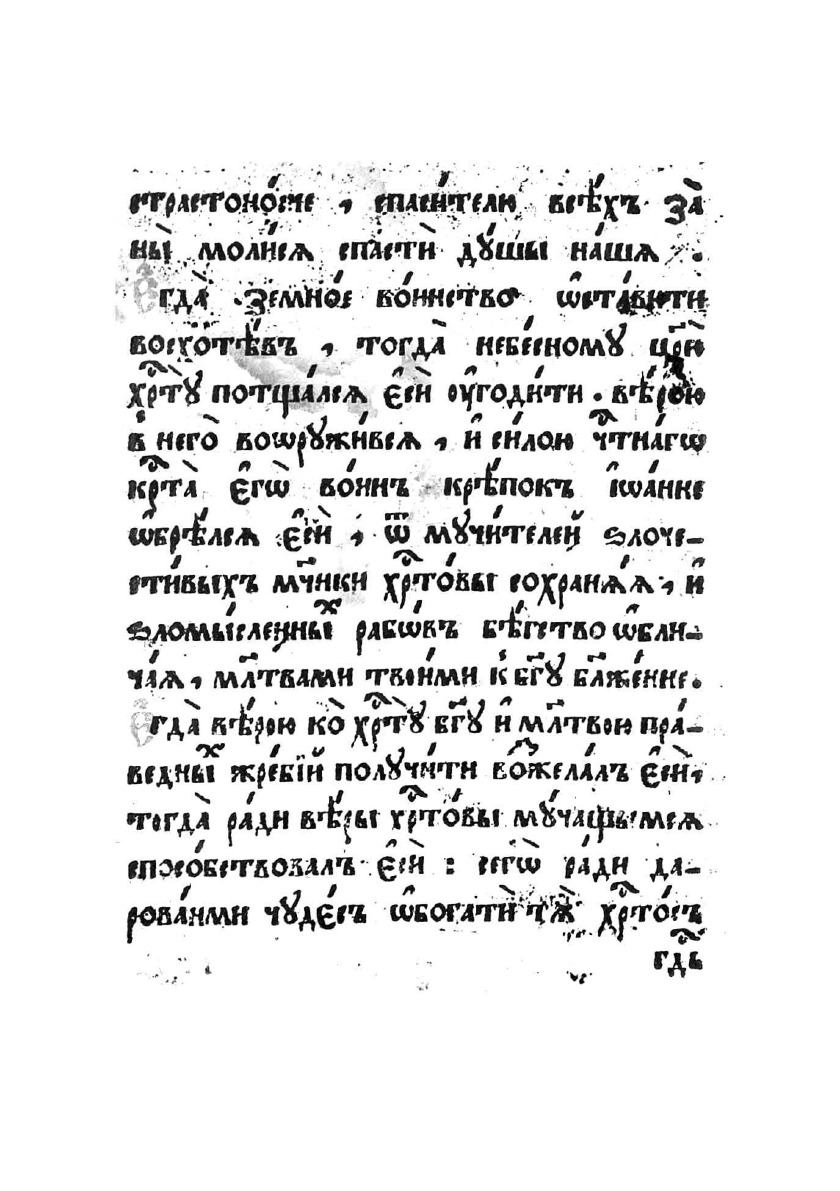 страстоно́сче , спаси́телю всѣ́хъ за̀
ны̀ моли́сѧ спастѝ дꙋ́шы на́шѧ .
Є҆гда̀ земно́е во́инство ѡ҆ста́вити
восхотѣ́въ , тогда̀ небе́сному цр҃ю̀
хрⷭ҇тꙋ̀ потща́лсѧ є҆сѝ оу҆годи́ти . вѣ́рою
в него̀ воѡрꙋжи́всѧ , и҆ си́лою чⷭ҇тна́гѡ
крⷭ҇та̀ є҆гѡ̀ во́инъ крѣ́покъ і҆ѡа́нне
ѡ҆брѣ́лсѧ є҆сѝ , ѿ мꙋчи́телей ѕлоче-
сти́выхъ мч҃ники хрⷭ҇то́вы сохранѧ́ѧ , и҆
ѕломы́сленныⷯ рабѡ́въ бѣ́гство ѡ҆бли-
ча́ѧ , мл҃твами твои́ми к бг҃ꙋ бл҃же́нне .
Є҆гда̀ вѣ́рою ко̀ хрⷭ҇тꙋ̀ бг҃ꙋ и҆ мл҃твою пра-
ведныⷯ жре́бїй полꙋчи́ти воⷥжела́лъ є҆сѝ ,
тогда̀ ра́ди вѣ́ры хрⷭ҇то́вы мꙋ́чащымсѧ
спосо́бствовалъ є҆сѝ : сегѡ̀ ра́ди да-
рова́нми чꙋде́съ ѡ҆богатѝ тѧ̀ хрⷭ҇то́съ
гдⷭ҇ь